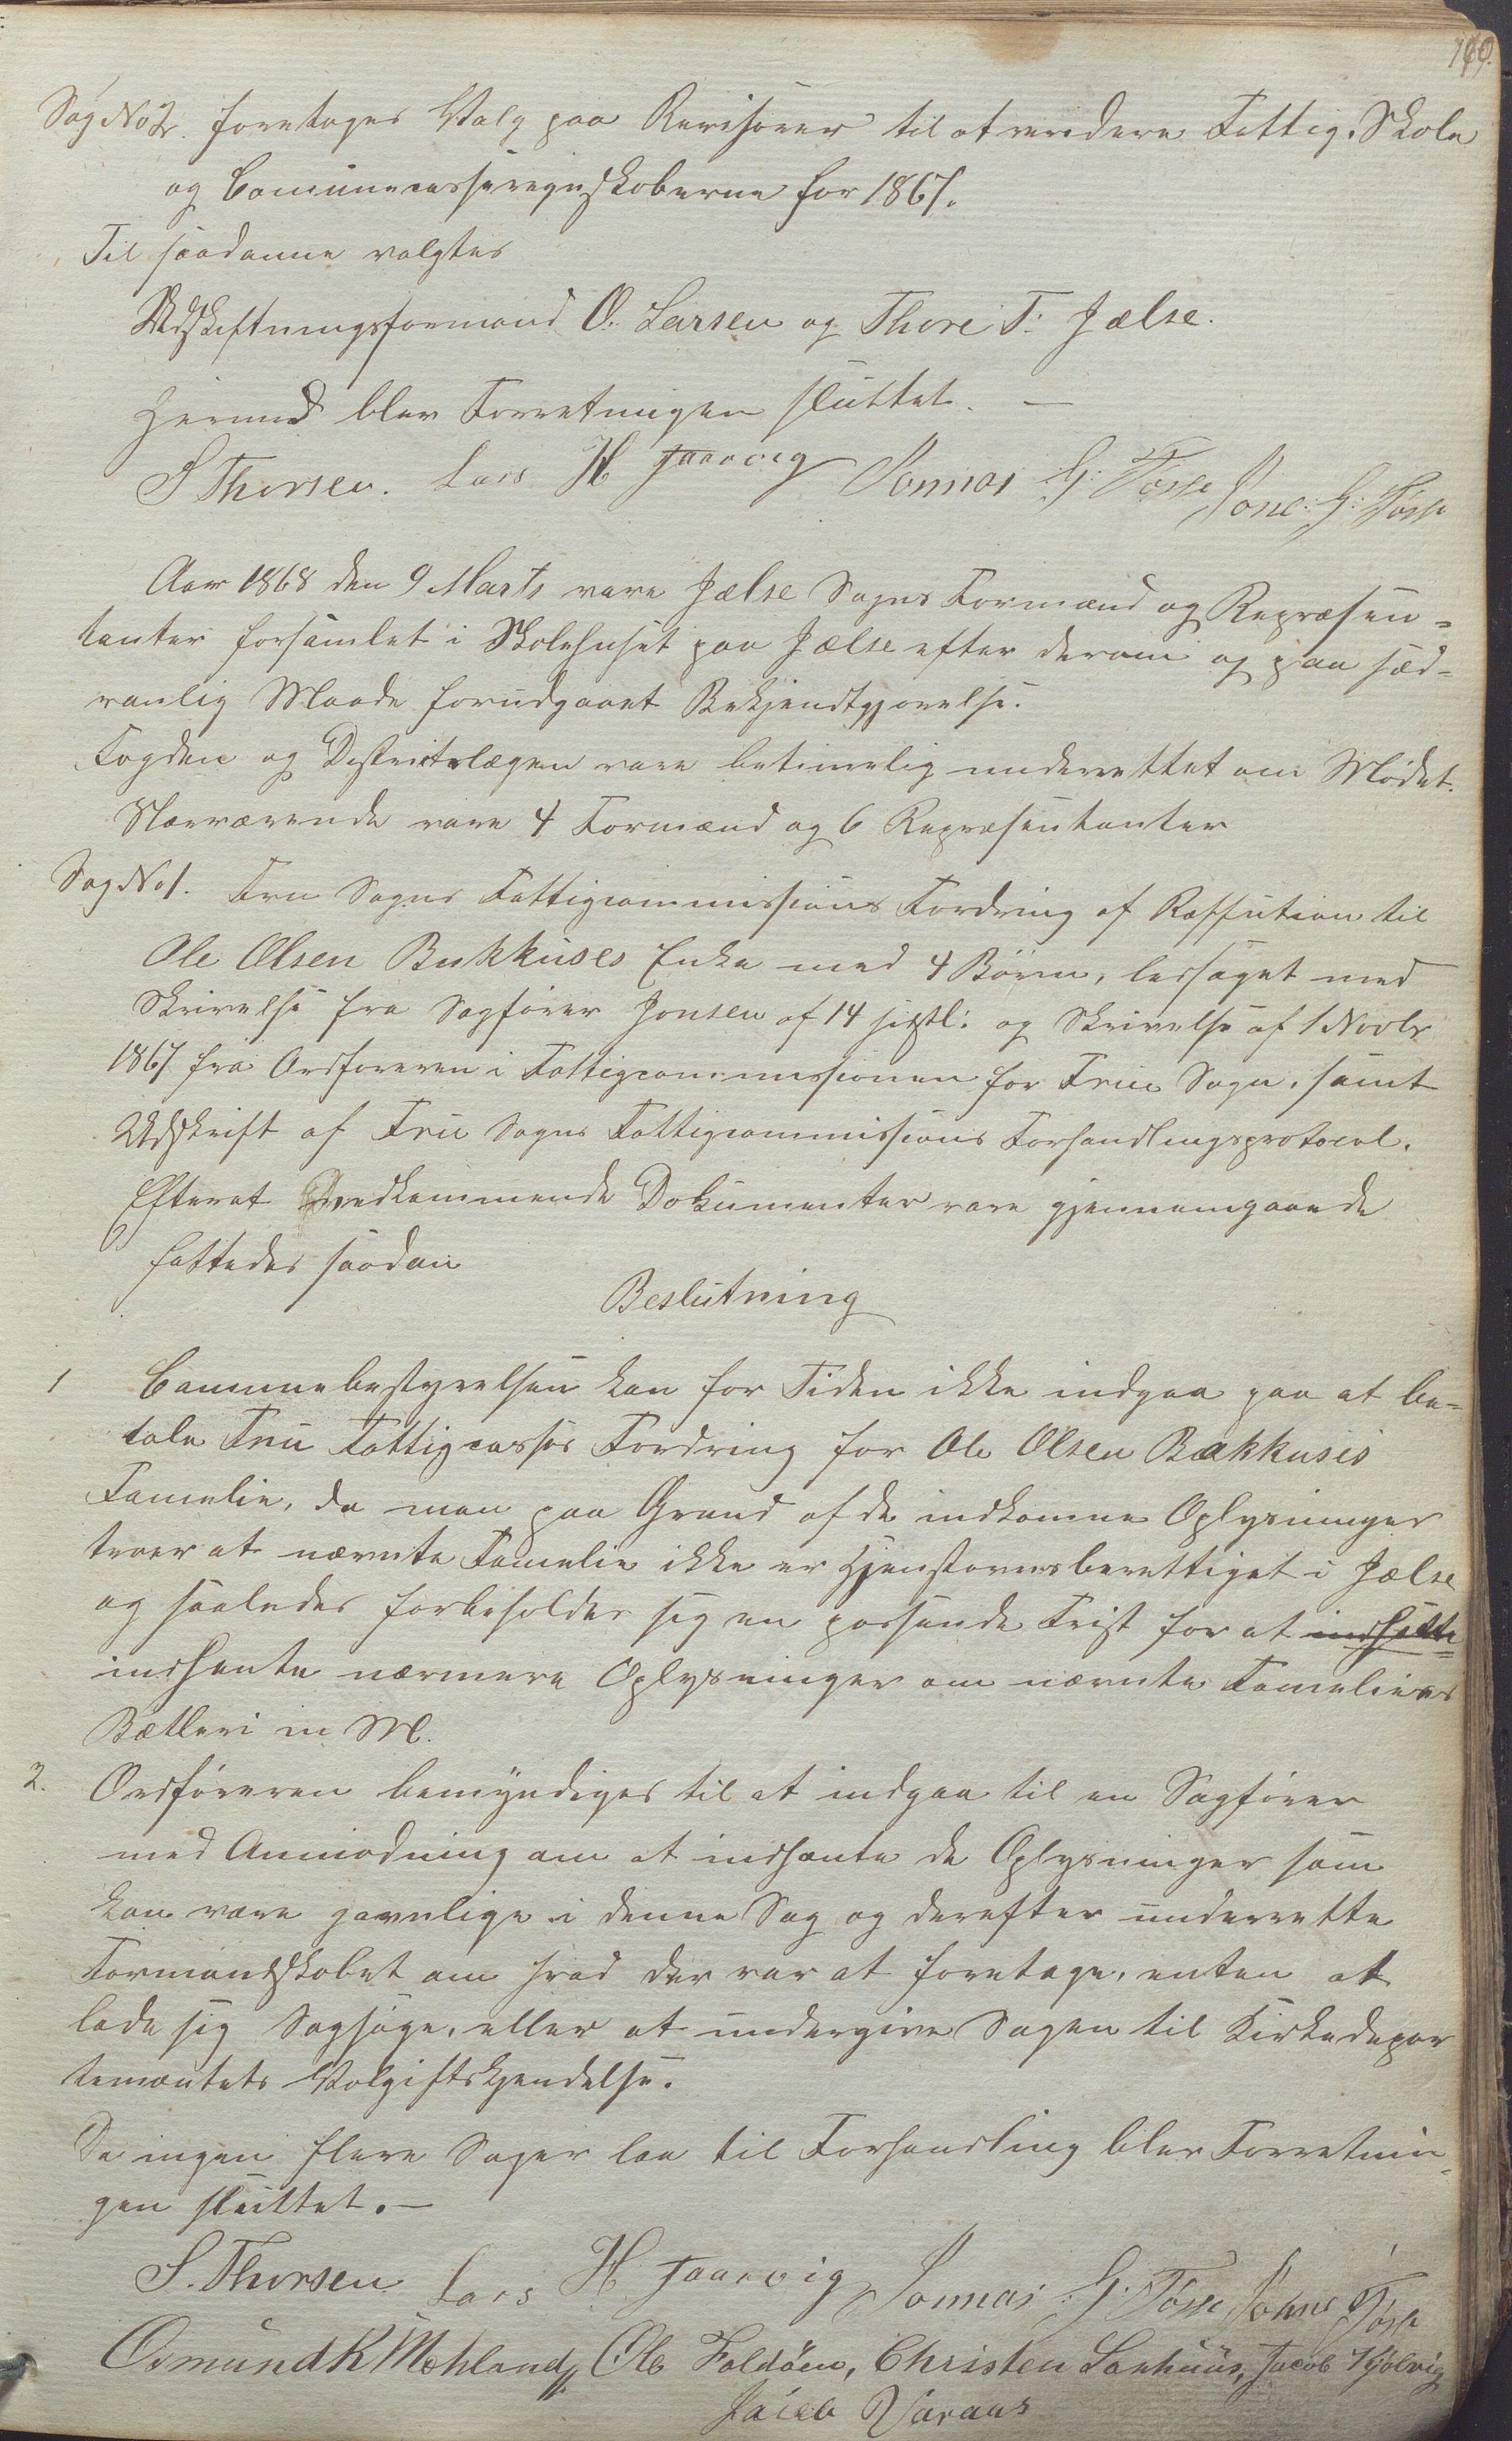 Sag No 2. foretages Valg paa Revisorer til at revidere Fattig, Skole
og Communecasseregnskaberne for 1867.
Til saadanne valgtes
Udskiftningsformand O. Larsen og Thore T. Jælse.
Hermed blev Forretningen sluttet. —
S Thorsen. Lars H Jaarvig Jonnas G: Tøsse Jone: G: Tøsse
Aar 1868 den 9 Marts vare Jælse Sogns Formænd og Repræsen-
tanter forsamlet i Skolehuset paa Jælse efter derom og paa sæd-
vanlig Maade forudgaaet Bekjendtgjørelse.
Fogden og Distriktslægen vare betimelig underrettet om Mødet.
Nærværende vare 4 Formænd og 6 Repræsentanter
Sag No 1. Frue Sogns Fattigcommissions Fordring af Refusion til
Ole Olsen Bukkuses Enke med 4 Børn, ledsaget med
Skrivelse fra Sagfører Jonsen af 14 sistl: og Skrivelse af 1 Novbr
1867 fra Ordføreren i Fattigcommissionen for Frue Sogn, samt
Udskrift af Frue Sogns Fattigcommissions Forhandlingsprotocol.
Efterat Vedkommende Dokumenter vare gjennemgaaede
fattedes saadan
Beslutning
1 Communebestyrelsen kan for Tiden ikke indgaa paa at be-
tale Frue Fattigcasses Fordring for Ole Olsen Bakkuses
Familie, da man paa Grund af de indkomne Oplysninger
troer at nævnte Familie ikke er Hjemstavnsberettiget i Jælse
og saaledes forbeholder sig en passende Frist for at indhætte
indhente nærmere Oplysninger om nævnte Familiens
Bætleri m M.
2. Ordføreren bemyndiges til at indgaa til en Sagfører
med Anmodning om at indhente de Oplysninger som
kan være gavnlige i denne Sag og derefter underrette
Formandskabet om hvad der var at foretage, enten at
lade sig Sagsøge, eller at undergive Sagen til Kirkedepar
tementets Volgiftskjendelse.
Da ingen flere Sager laa til Forhandling blev Forretnin-
gen sluttet. —
S. Thorsen Lars H Jaarvig Jonnas G. Tøsse Johne Tøsse
Osmund K Mæhland, Ole Foldøen, Christen Sanhuus, Jacob Kjølvig
Jacob Varaas